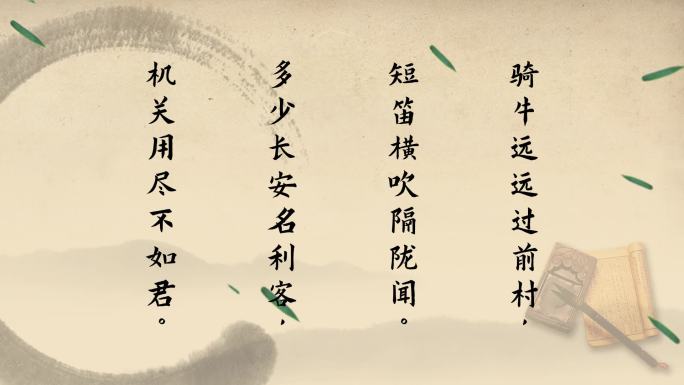 骑牛远远过前村，
短笛横吹隔陇闻。
多少长安名利客，
机关用尽不如君。